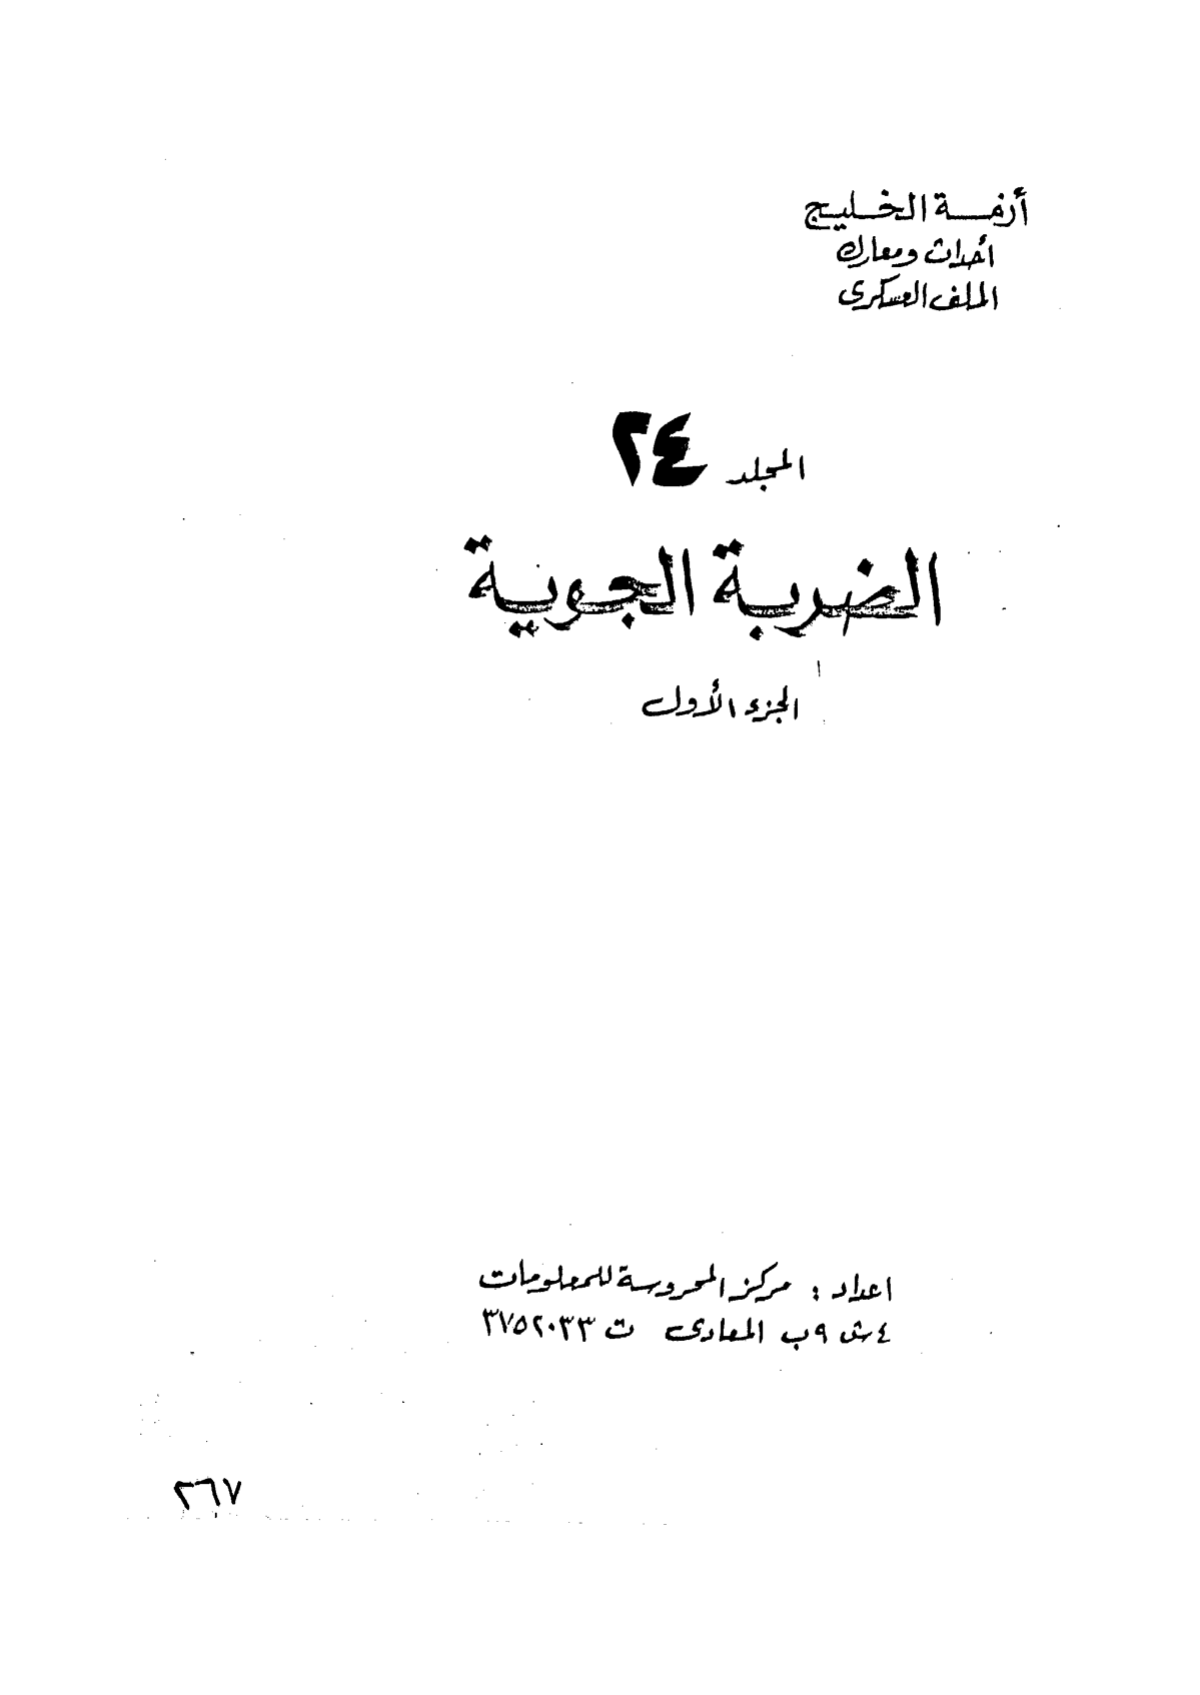 أزمة الخليج
أحداث ومعارك
الملف العسكرى
المجلد ٢٤
الضربة الجوية
الجزء الأول
اعداد : مركز المحروسة للمعلومات
٤ ش ٩ب المعادى ت ٣٧٥٢٠٣٣
٢٦٧